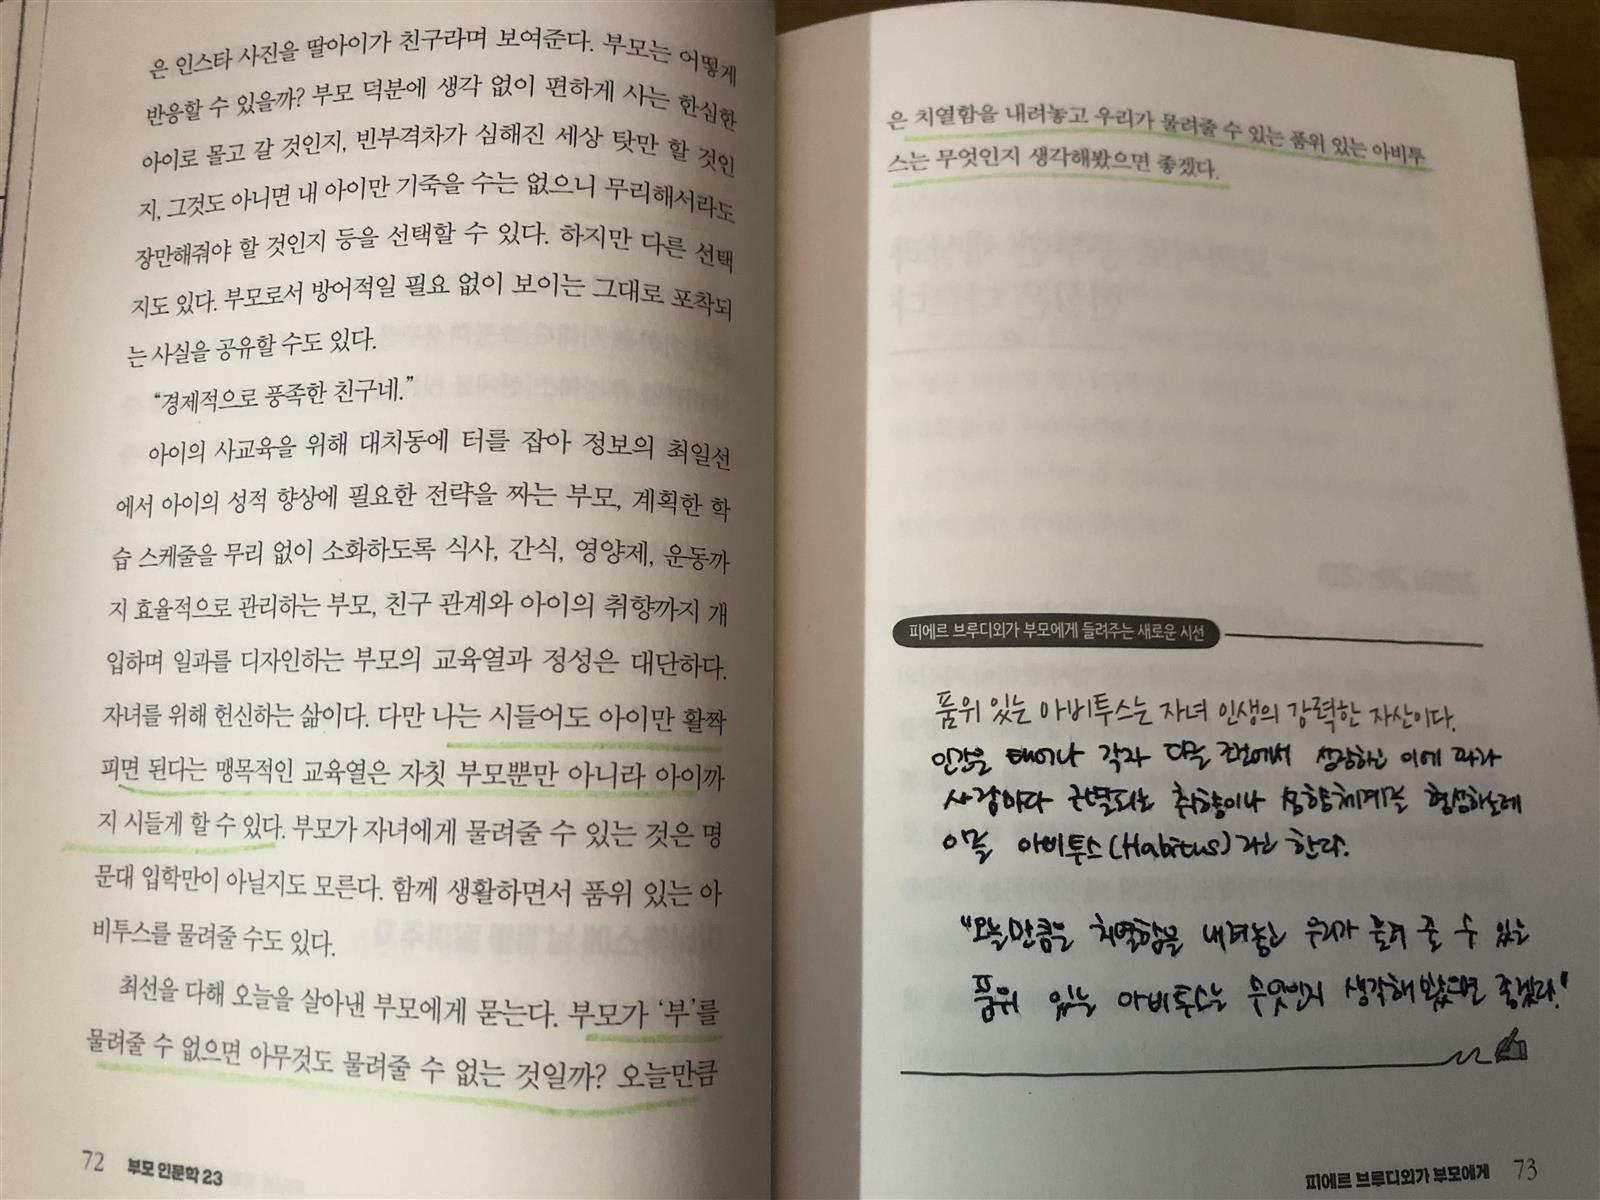 은 인스타 사진을 딸아이가 친구라며 보여준다. 부모는 어떻게
반응할 수 있을까? 부모 덕분에 생각 없이 편하게 사는 한심한
아이로 몰고 갈 것인지, 빈부격차가 심해진 세상 탓만 할 것인
지, 그것도 아니면 내 아이만 기죽을 수는 없으니 무리해서라도
장만해줘야 할 것인지 등을 선택할 수 있다. 하지만 다른 선택
지도 있다. 부모로서 방어적일 필요 없이 보이는 그대로 포착되
는 사실을 공유할 수도 있다.
“경제적으로 풍족한 친구네.”
아이의 사교육을 위해 대치동에 터를 잡아 정보의 최일선
에서 아이의 성적 향상에 필요한 전략을 짜는 부모, 계획한 학
습 스케줄을 무리 없이 소화하도록 식사, 간식, 영양제, 운동까
지 효율적으로 관리하는 부모, 친구 관계와 아이의 취향까지 개
입하며 일과를 디자인하는 부모의 교육열과 정성은 대단하다.
자녀를 위해 헌신하는 삶이다. 다만 나는 시들어도 아이만 활짝
피면 된다는 맹목적인 교육열은 자칫 부모뿐만 아니라 아이까
지 시들게 할 수 있다. 부모가 자녀에게 물려줄 수 있는 것은 명
문대 입학만이 아닐지도 모른다. 함께 생활하면서 품위 있는 아
비투스를 물려줄 수도 있다.
최선을 다해 오늘을 살아낸 부모에게 묻는다. 부모가 ‘부’를
물려줄 수 없으면 아무것도 물려줄 수 없는 것일까? 오늘만큼
72 부모 인문학 23
은 치열함을 내려놓고 우리가 물려줄 수 있는 품위 있는 아비투
스는 무엇인지 생각해봤으면 좋겠다.
피에르 브루디외가 부모에게 들려주는 새로운 시선
품위 있는 아비투스는 자녀 인생의 강력한 자산이다.
인간은 태어나 각자 다른 환경에서 성장하고 이에 따라
사람마다 구별되는 취향이나 성향체계를 형성하는데
이를 아비투스(Habitus)라고 한다.
"오늘만큼은 치열함을 내려놓고 우리가 물려 줄 수 있는
품위 있는 아비투스는 무엇인지 생각해 봤으면 좋겠다."
피에르 브루디외가 부모에게 73